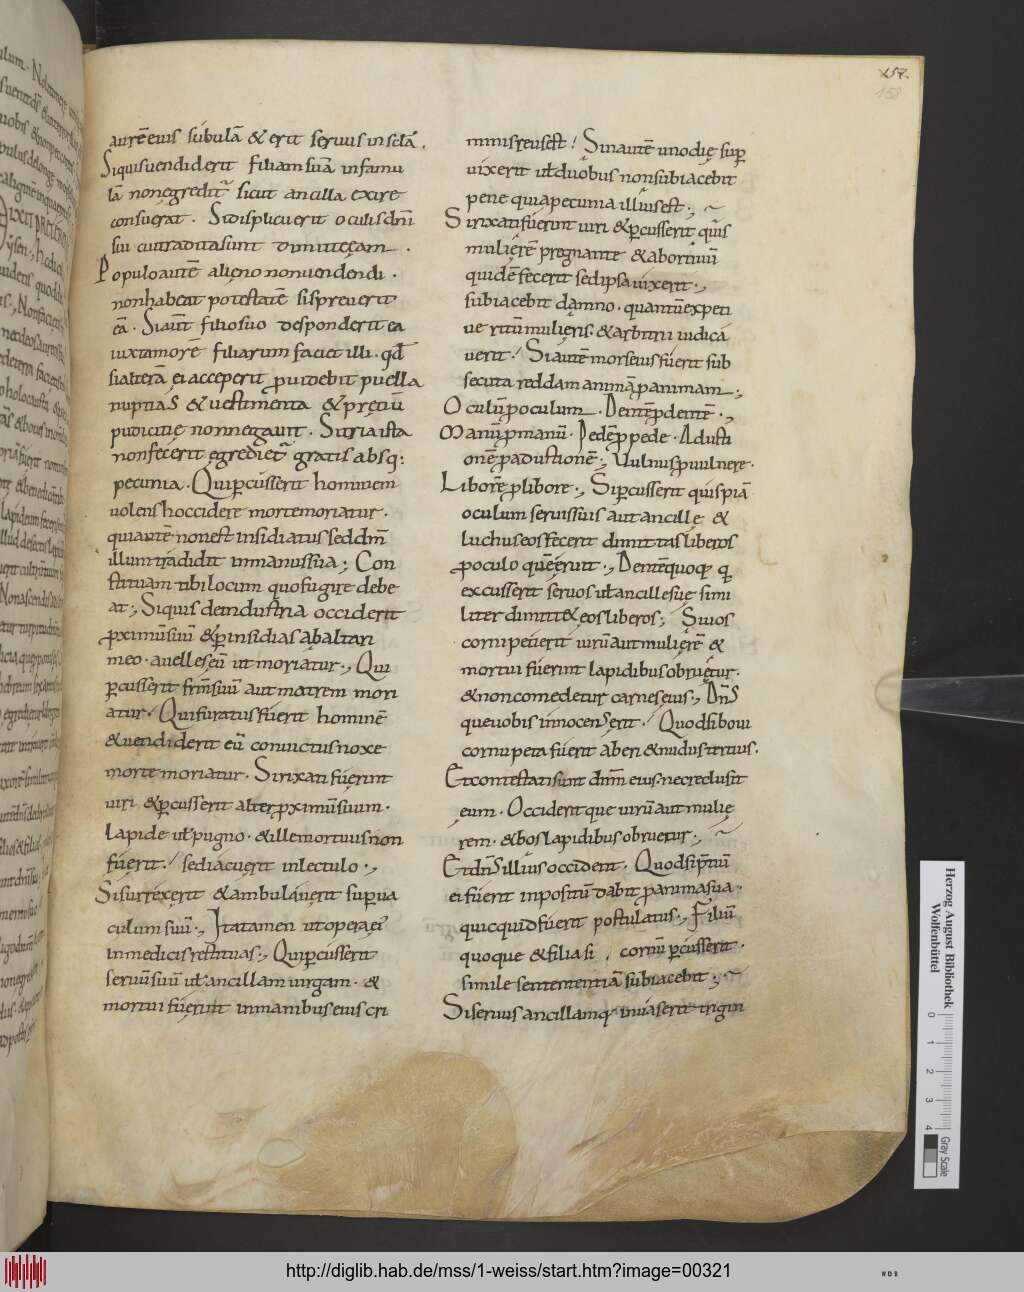 157.
158
aurē eius subula & erit seruus in sclā.
Siquis uendiderit filiam suā in famu
lā non egredit sicut ancilla exire
consuerat. Si displicuerit oculis dn̄i
sui cui tradita sunt dimitteam.
Populo autē alieno non uendendi.
non habeat potestatē si spreuerit
eā. Si aut filio suo desponderit ea
iuxta morē filiarum faciet illi. qd
si alterā ei acceperit prouidebit puella
nuptias & uestimenta & pretiū
pudicitie non negauit. Si tria ista
non fecerit egrediet gratis absq;
pecunia. Qui pcusserit hominem
uolens hoccidere morte moriatur.
qui autē non est insidiatus sed dm̄
illum tradidit in manus sua; Con
stituam tibi locum quo fugire debe
at; Siquis de industria occiderit
pximū suū & p insidias ab altari
meo. auelles eū ut moriatur; Qui
pcusserit frm̄ suū aut matrem mori
atur. Qui furatus fuerit hominē
& uendiderit eū conuictus noxe
morte moriatur. Si rixati fuerint
uiri & pcusserit alter pximū suum.
lapide ut pugno. & ille mortuus non
fuerit. sed iacuerit in lectulo.
Si surrexerit & ambulauerit sup ua
culum suū; Ita tamen ut opera ei
in medicis restituas; Qui pcusserit
seruū suū ut ancillam uirgam. &
mortui fuerint in manibus eius cri
minis reus est. Sin autē uno die sup
uixerit ut duobus non subiacebit
pene quia pecunia illius est;
Si rixati fuerint uiri & pcusserit quis
mulierē pregnante & abortiuū
quidē fecerit sed ipsa uixerit;
subiacebit damno. quantū expeti
uerit ū mulieris. & arbitri iudica
uerit. Si autē mors eius fuerit sub
secuta reddam animā p animam;
Oculū p oculum. Dentē p dentē;
Manū p manū. Pedē p pede. Adusti
onē p adustionē; Uulnus p uulnere.
Liborē p libore; Si pcusserit quispiā
oculum serui suis aut ancille &
luchus eos fecerit dimittas liberos
poculo quē eruit; Dentē quoq; q
excusserit seruos ut ancille sue simi
liter dimitt& eos liberos; Si uios
cornipetierit uirū aut mulierē &
mortui fuerint lapidibus obruetur.
& non comedetur carnes eius; Dn̄s
que uobis innocens erit. Quod si boui
cornupeta fuerit ab eri & nudus tertius.
Et contestati sunt dnm̄ eius. nec reclusit
eum. Occiderit que uirū aut mulie
rem. & bos lapidibus obruetur;
Et dns illius occident. Quod si ptiū
ei fuerit inpositū dabit p anima sua.
quicquid fuerit postulatus; Filiū
quoque & filia si cornū pcusserit.
simile sentementiā subiacebit;
Si seruus ancillamq; inuaserit trigin
Herzog August Bibliothek
Wolfenbüttel
0 1 2 3 4
Gray Scale
http://diglib.hab.de/mss/1-weiss/start.htm?image=00321